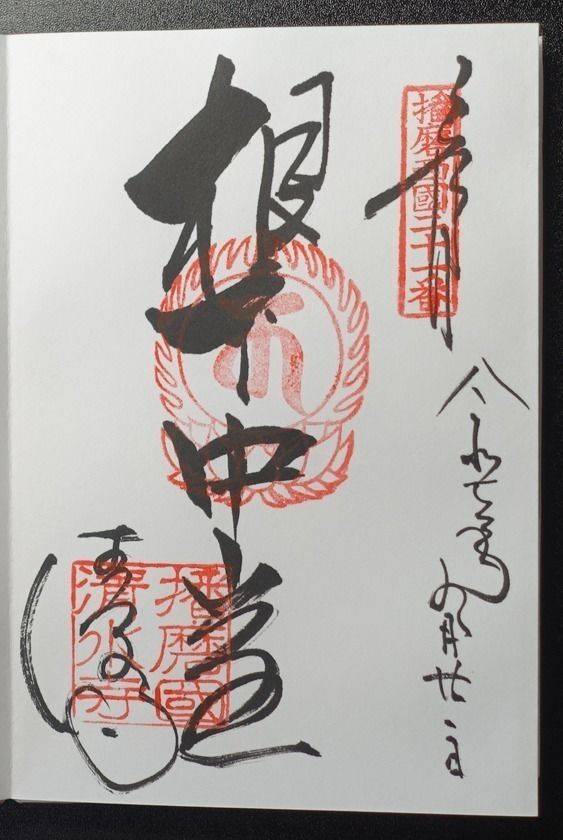 奉拝
播磨西國二十一番
令和七年九月廿
根本中堂
清水寺
播磨國
清水寺